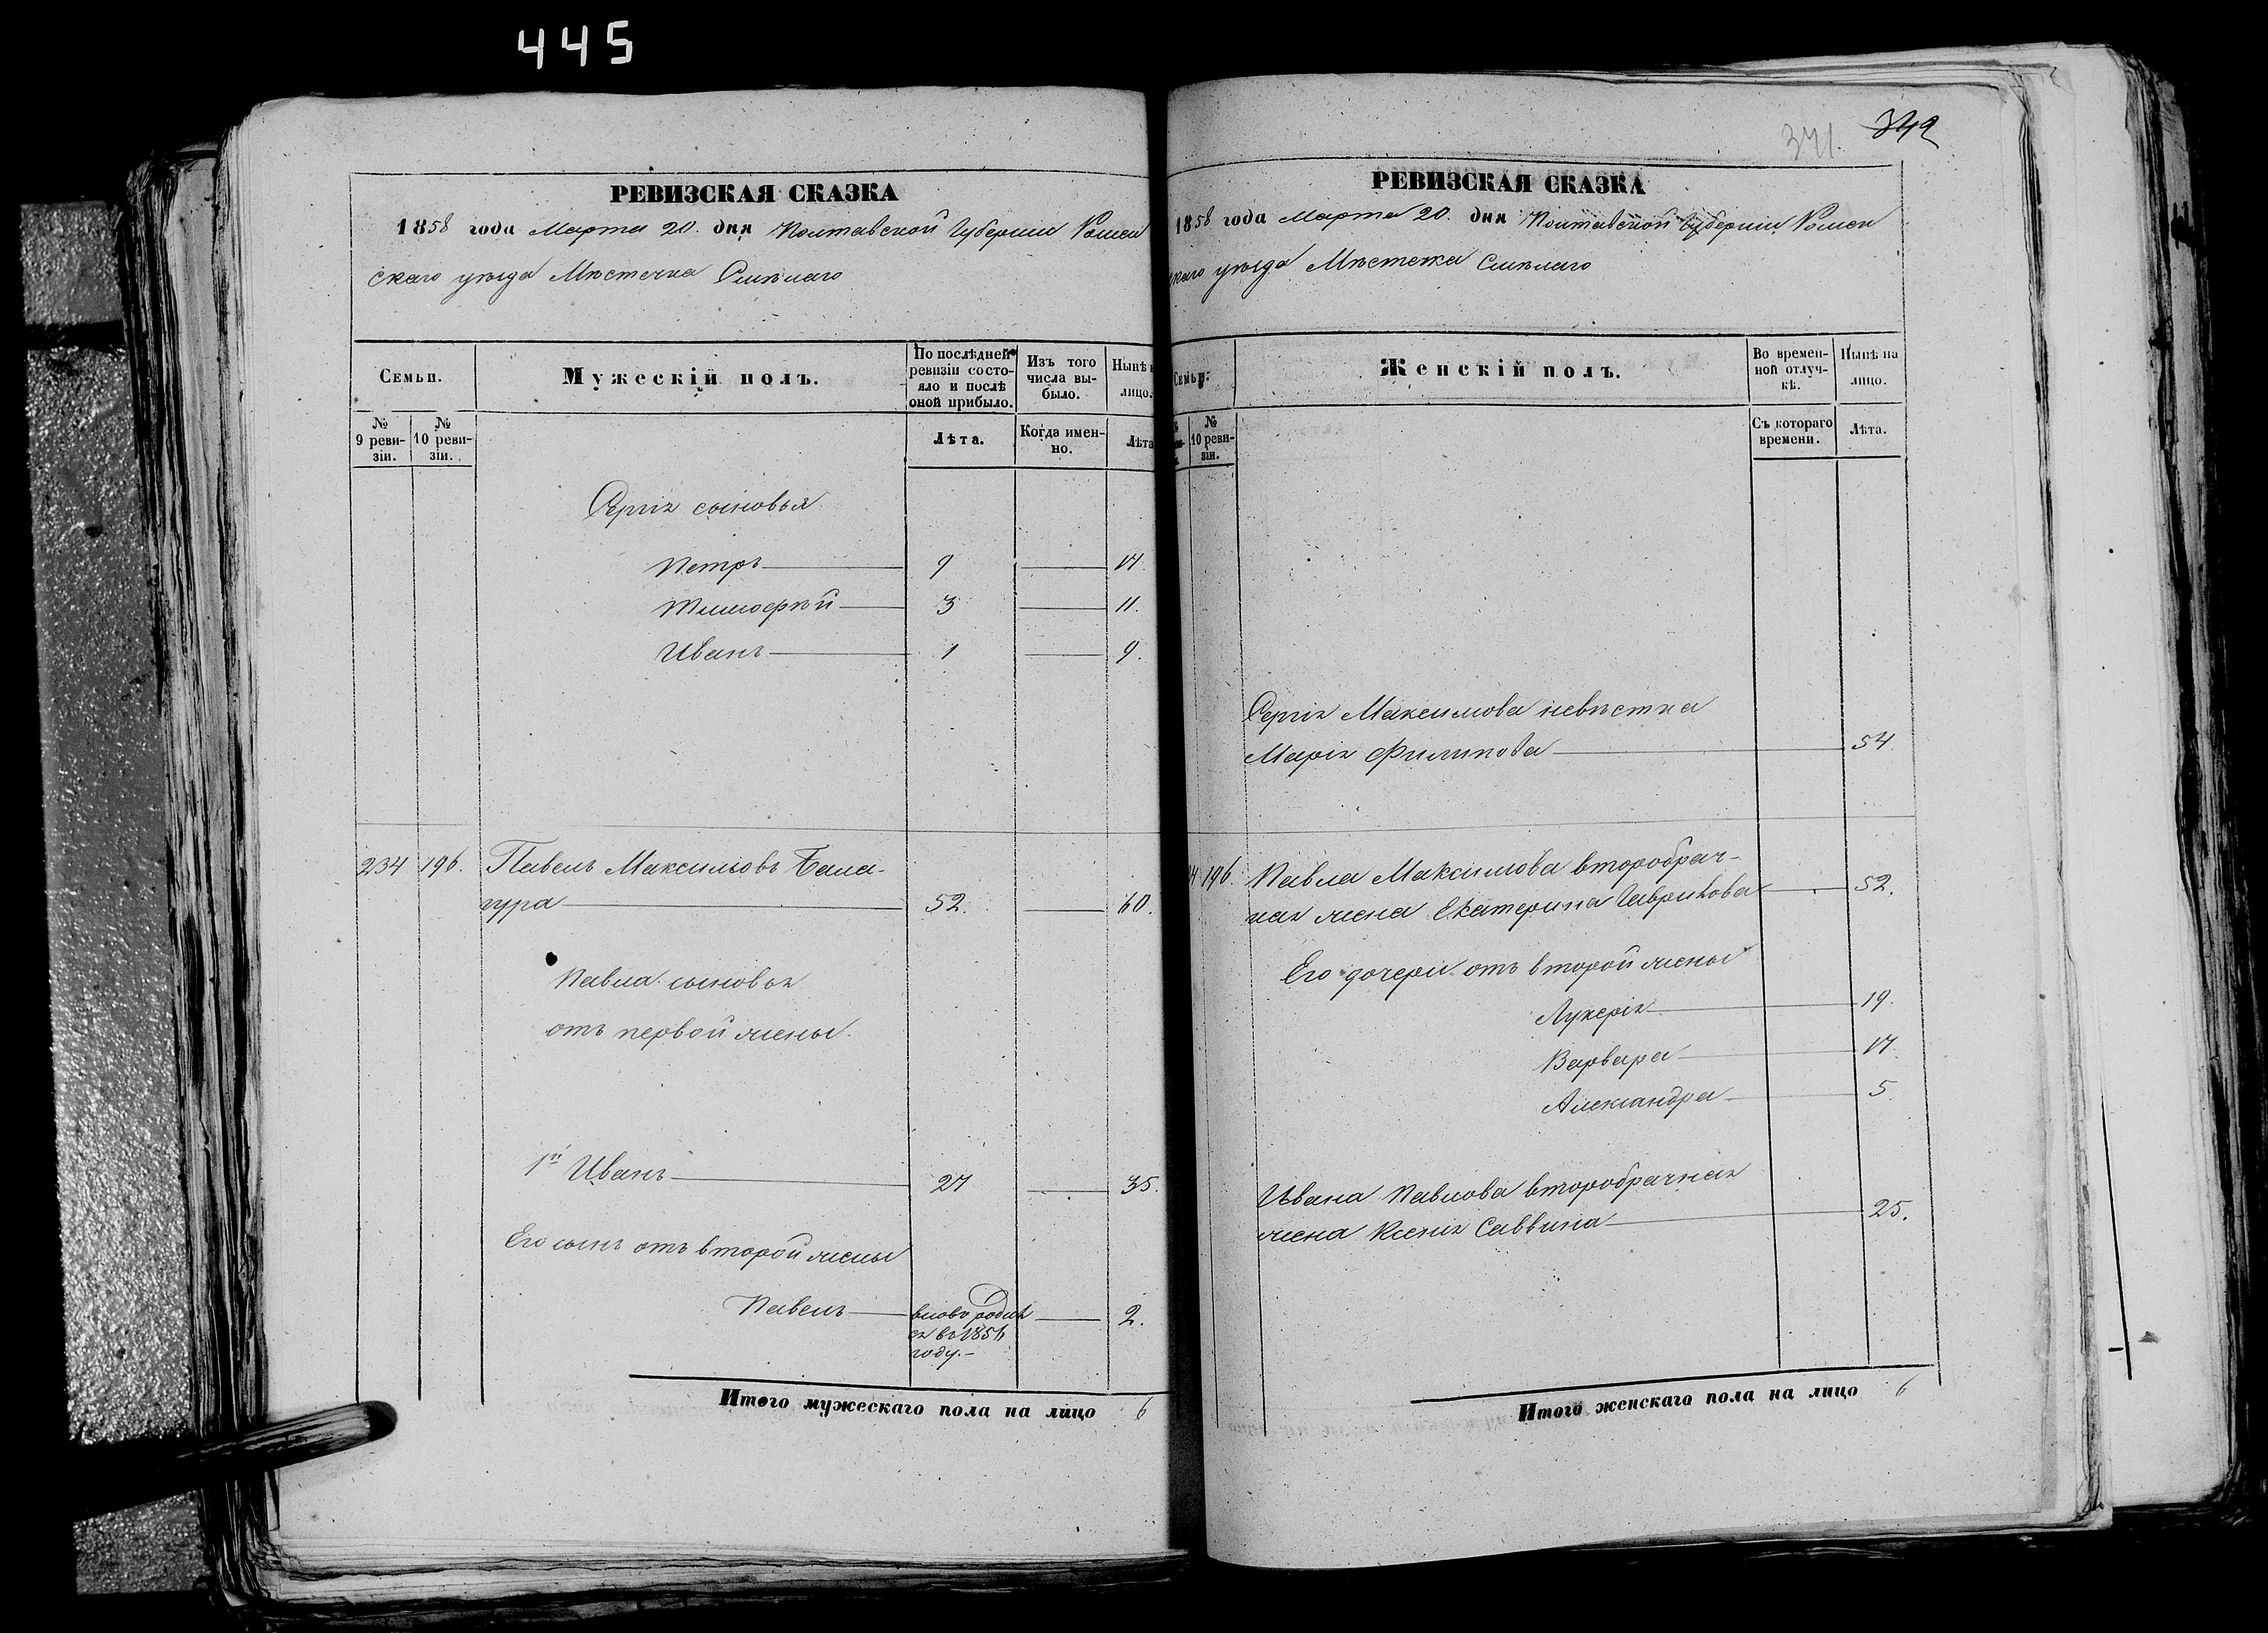 445
РЕВИЗСКАЯ СКАЗКА
1858 года Марта 20. дня Полтавской Губернии Ромен
скаго уѣзда Мѣстечка Смѣлаго
Семьи.
Мужескій полъ.
По послѣдней ревизіи состояло и послѣ оной прибыло.
Изъ того числа выбыло.
Нынѣ
лицо.
№ 9 ревизіи.
№ 10 ревизіи.
Лѣта.
Когда именно.
Лѣта
Сергія сыновья
Петръ 9 17.
Тимофѣй 3 11.
Иванъ 1 9.
234 196. Павелъ Максимовъ Бала-
гура 52. 60.
Павла сыновья
отъ первой жены
1й Иванъ 27 35.
Его сынъ отъ второй жены
Павелъ вновь родил 2.
ся въ 1856
году.-
Итого мужескаго пола на лицо 6
371. 342
РЕВИЗСКАЯ СКАЗКА
1858 года Марта 20. дня Полтавской Губерніи Ромен
скаго уѣзда Мѣстечка Смѣлаго
Семьи.
Женскій полъ.
Во временной отлучкѣ.
Нынѣ на лицо.
№ 10 ревизіи.
Съ котораго времени.
Лѣта.
Сергія Максимова невѣстка
Марія Филипова 54.
4 196. Павла Максимова второбрач-
ная жена Екатерина Гаврилова 52.
Его дочери отъ второй жены
Лукерія 19.
Варвара 17.
Александра 5.
Ивана Павлова второбрачная
жена Ксенія Саввина 25.
Итого женскаго пола на лицо 6